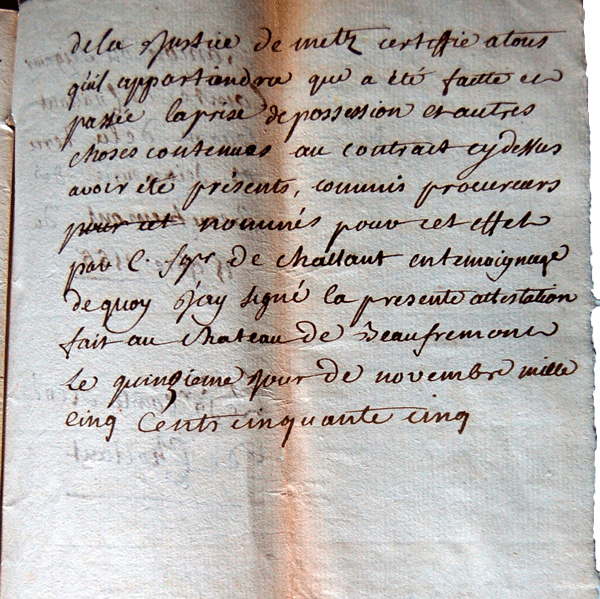 de la Justice de metz certiffie a tous
qu'il appartiendra que a été faitte et
passée la prise de possession et autres
choses contenues au contract cy dessus
avoir été présents, commis procureurs
pour cet nommés pour cet effet
par l. sgr. de challant en temoignage
de quoy J'ay signé la presente attestation
fait au chateau de Beaufremont
Le quinzieme Jour de novembre mille
cinq Cents cinquante cinq